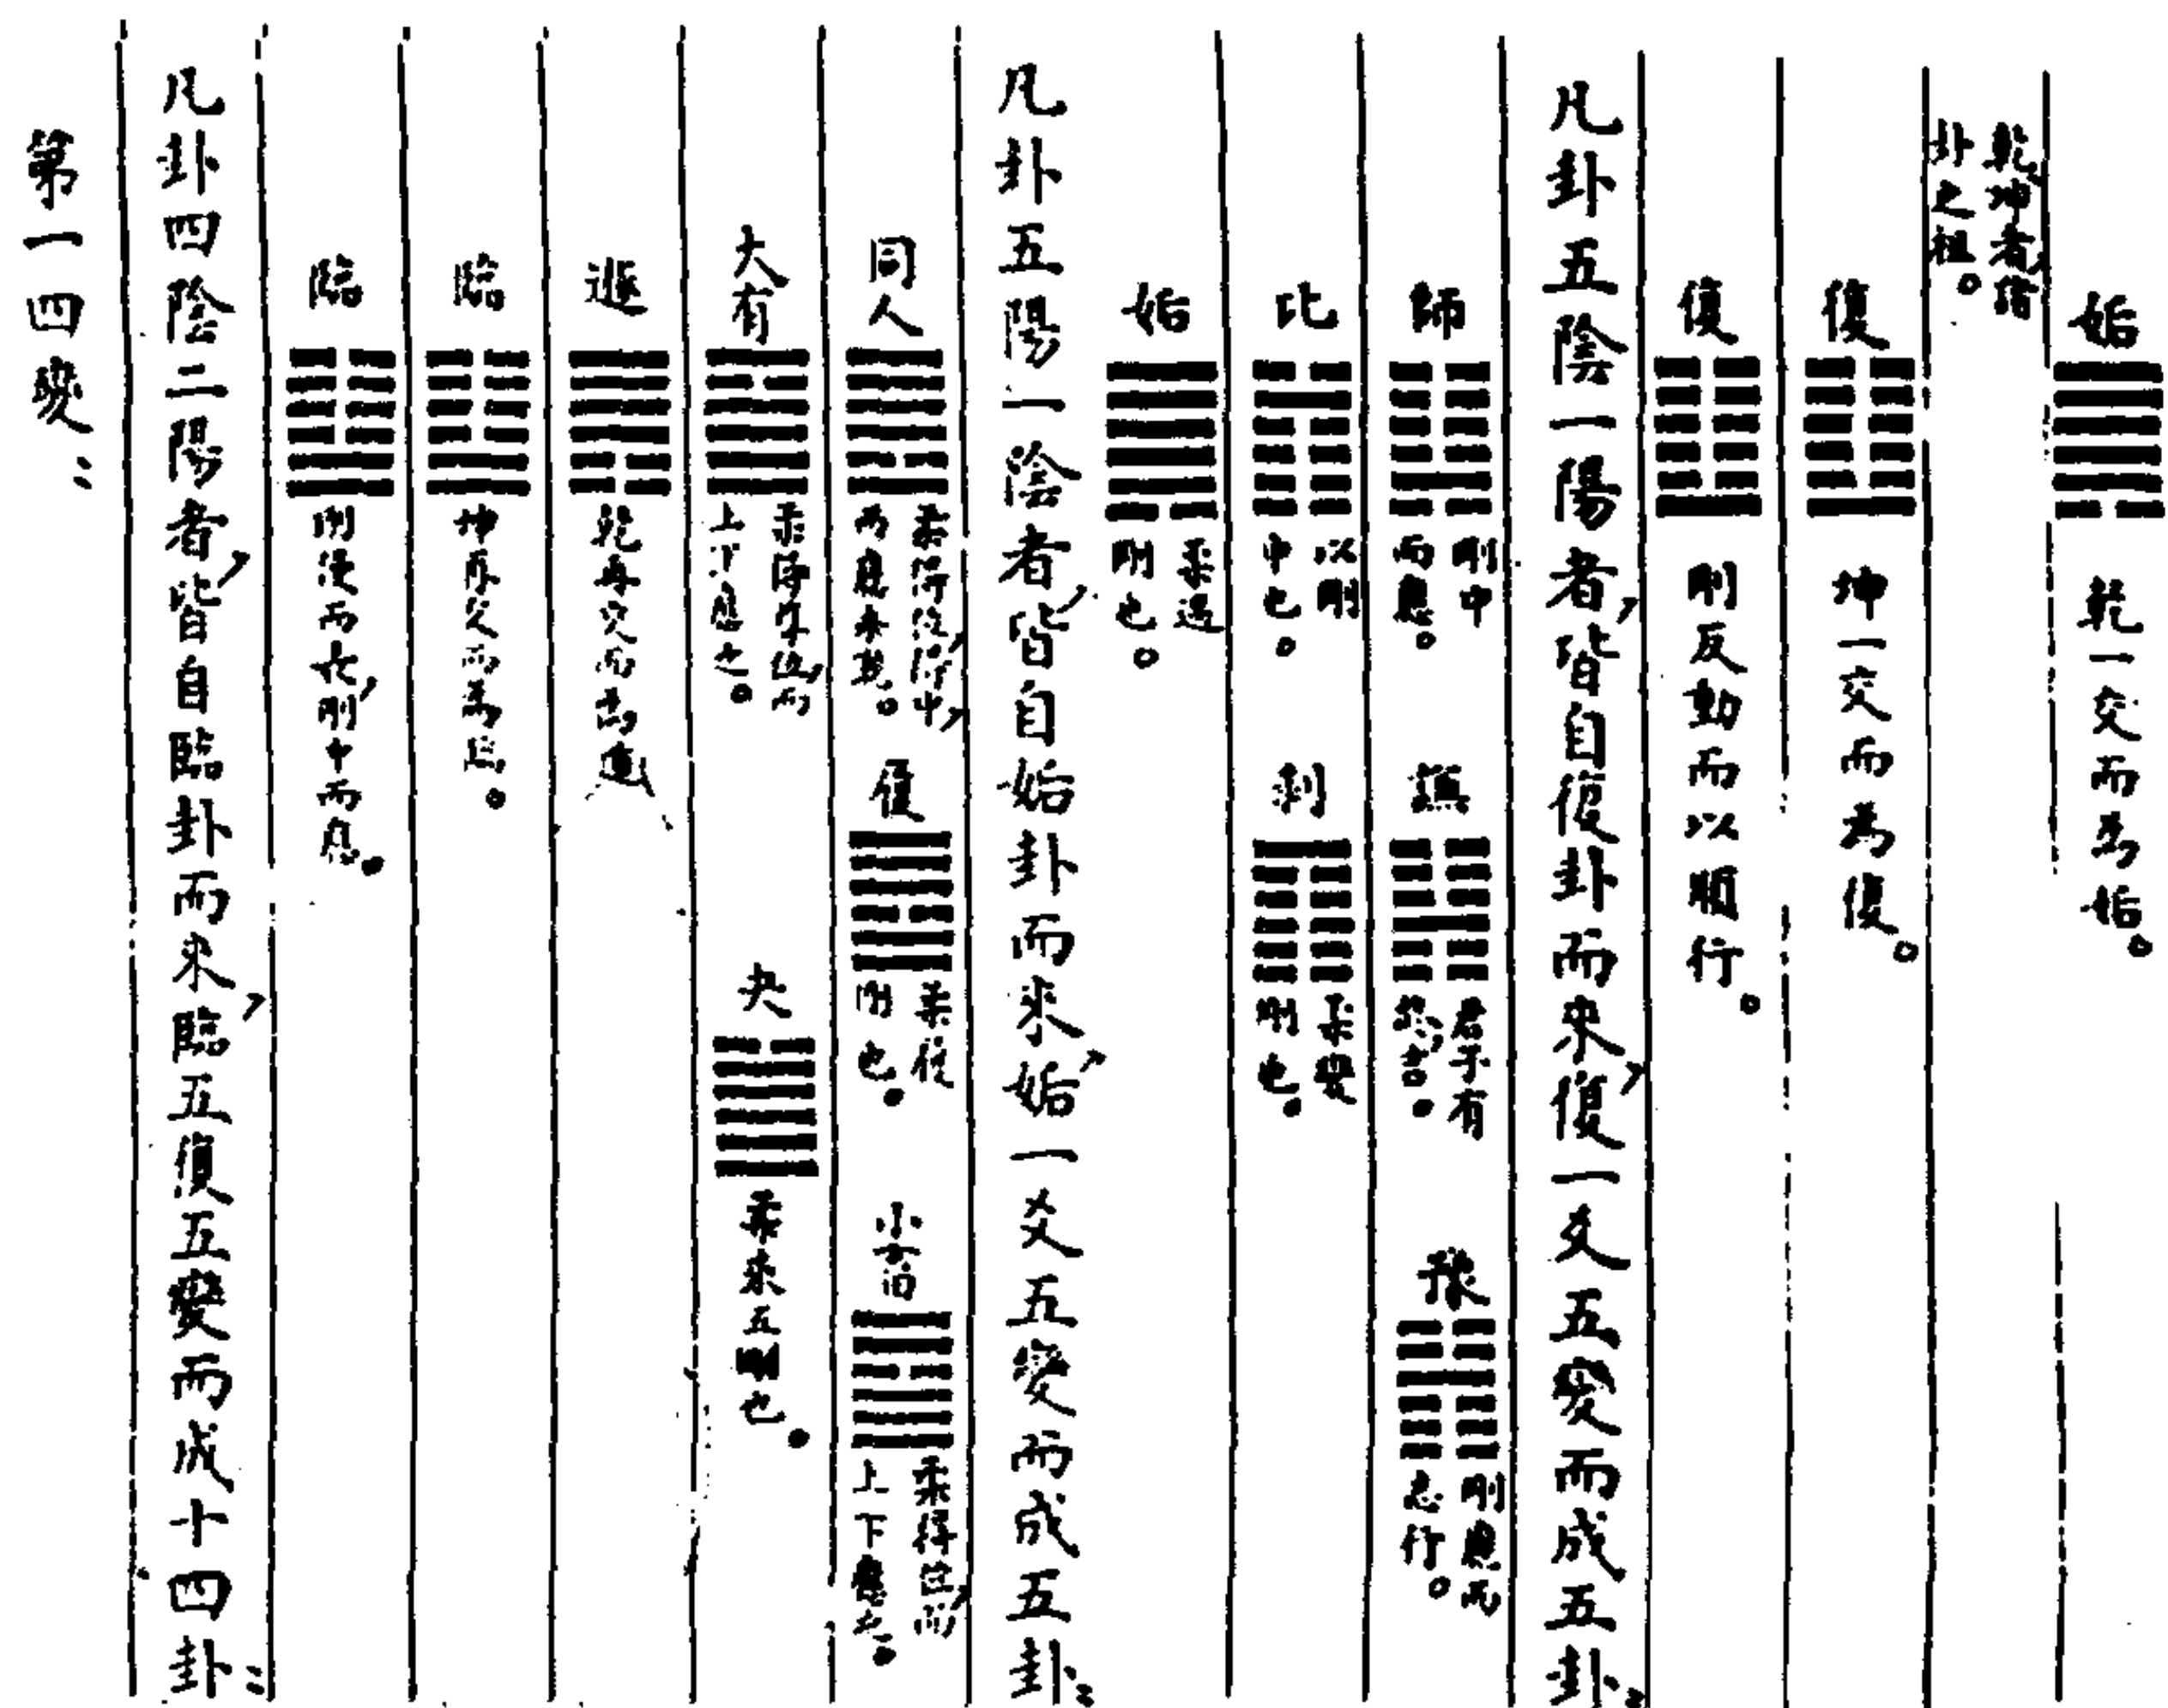 姤 乾一交而為姤。
乾坤者諸
卦之祖。
復 坤一交而為復。
復 剛反動而以順行。
凡卦五陰一陽者,皆自復卦而來,復一爻五變而成五卦:
師 剛中
而應。
謙 君子有
終,吉。
豫 剛應而
志行。
比 以剛
中也。
剝 柔變
剛也。
姤 柔遇
剛也。
凡卦五陽一陰者,皆自姤卦而來,姤一爻五變而成五卦:
同人 柔得位,得中,
而應乎乾。
履 柔履
剛也。
小畜 柔得位而
上下應之。
大有 柔得尊位,而
上下應之。
夬 柔乘五剛也。
遯 乾再交而為遯
臨 坤再交而為臨。
臨 剛浸而長,剛中而應。
凡卦四陰二陽者,皆自臨卦而來,臨五復五變而成十四卦:
第一四變: